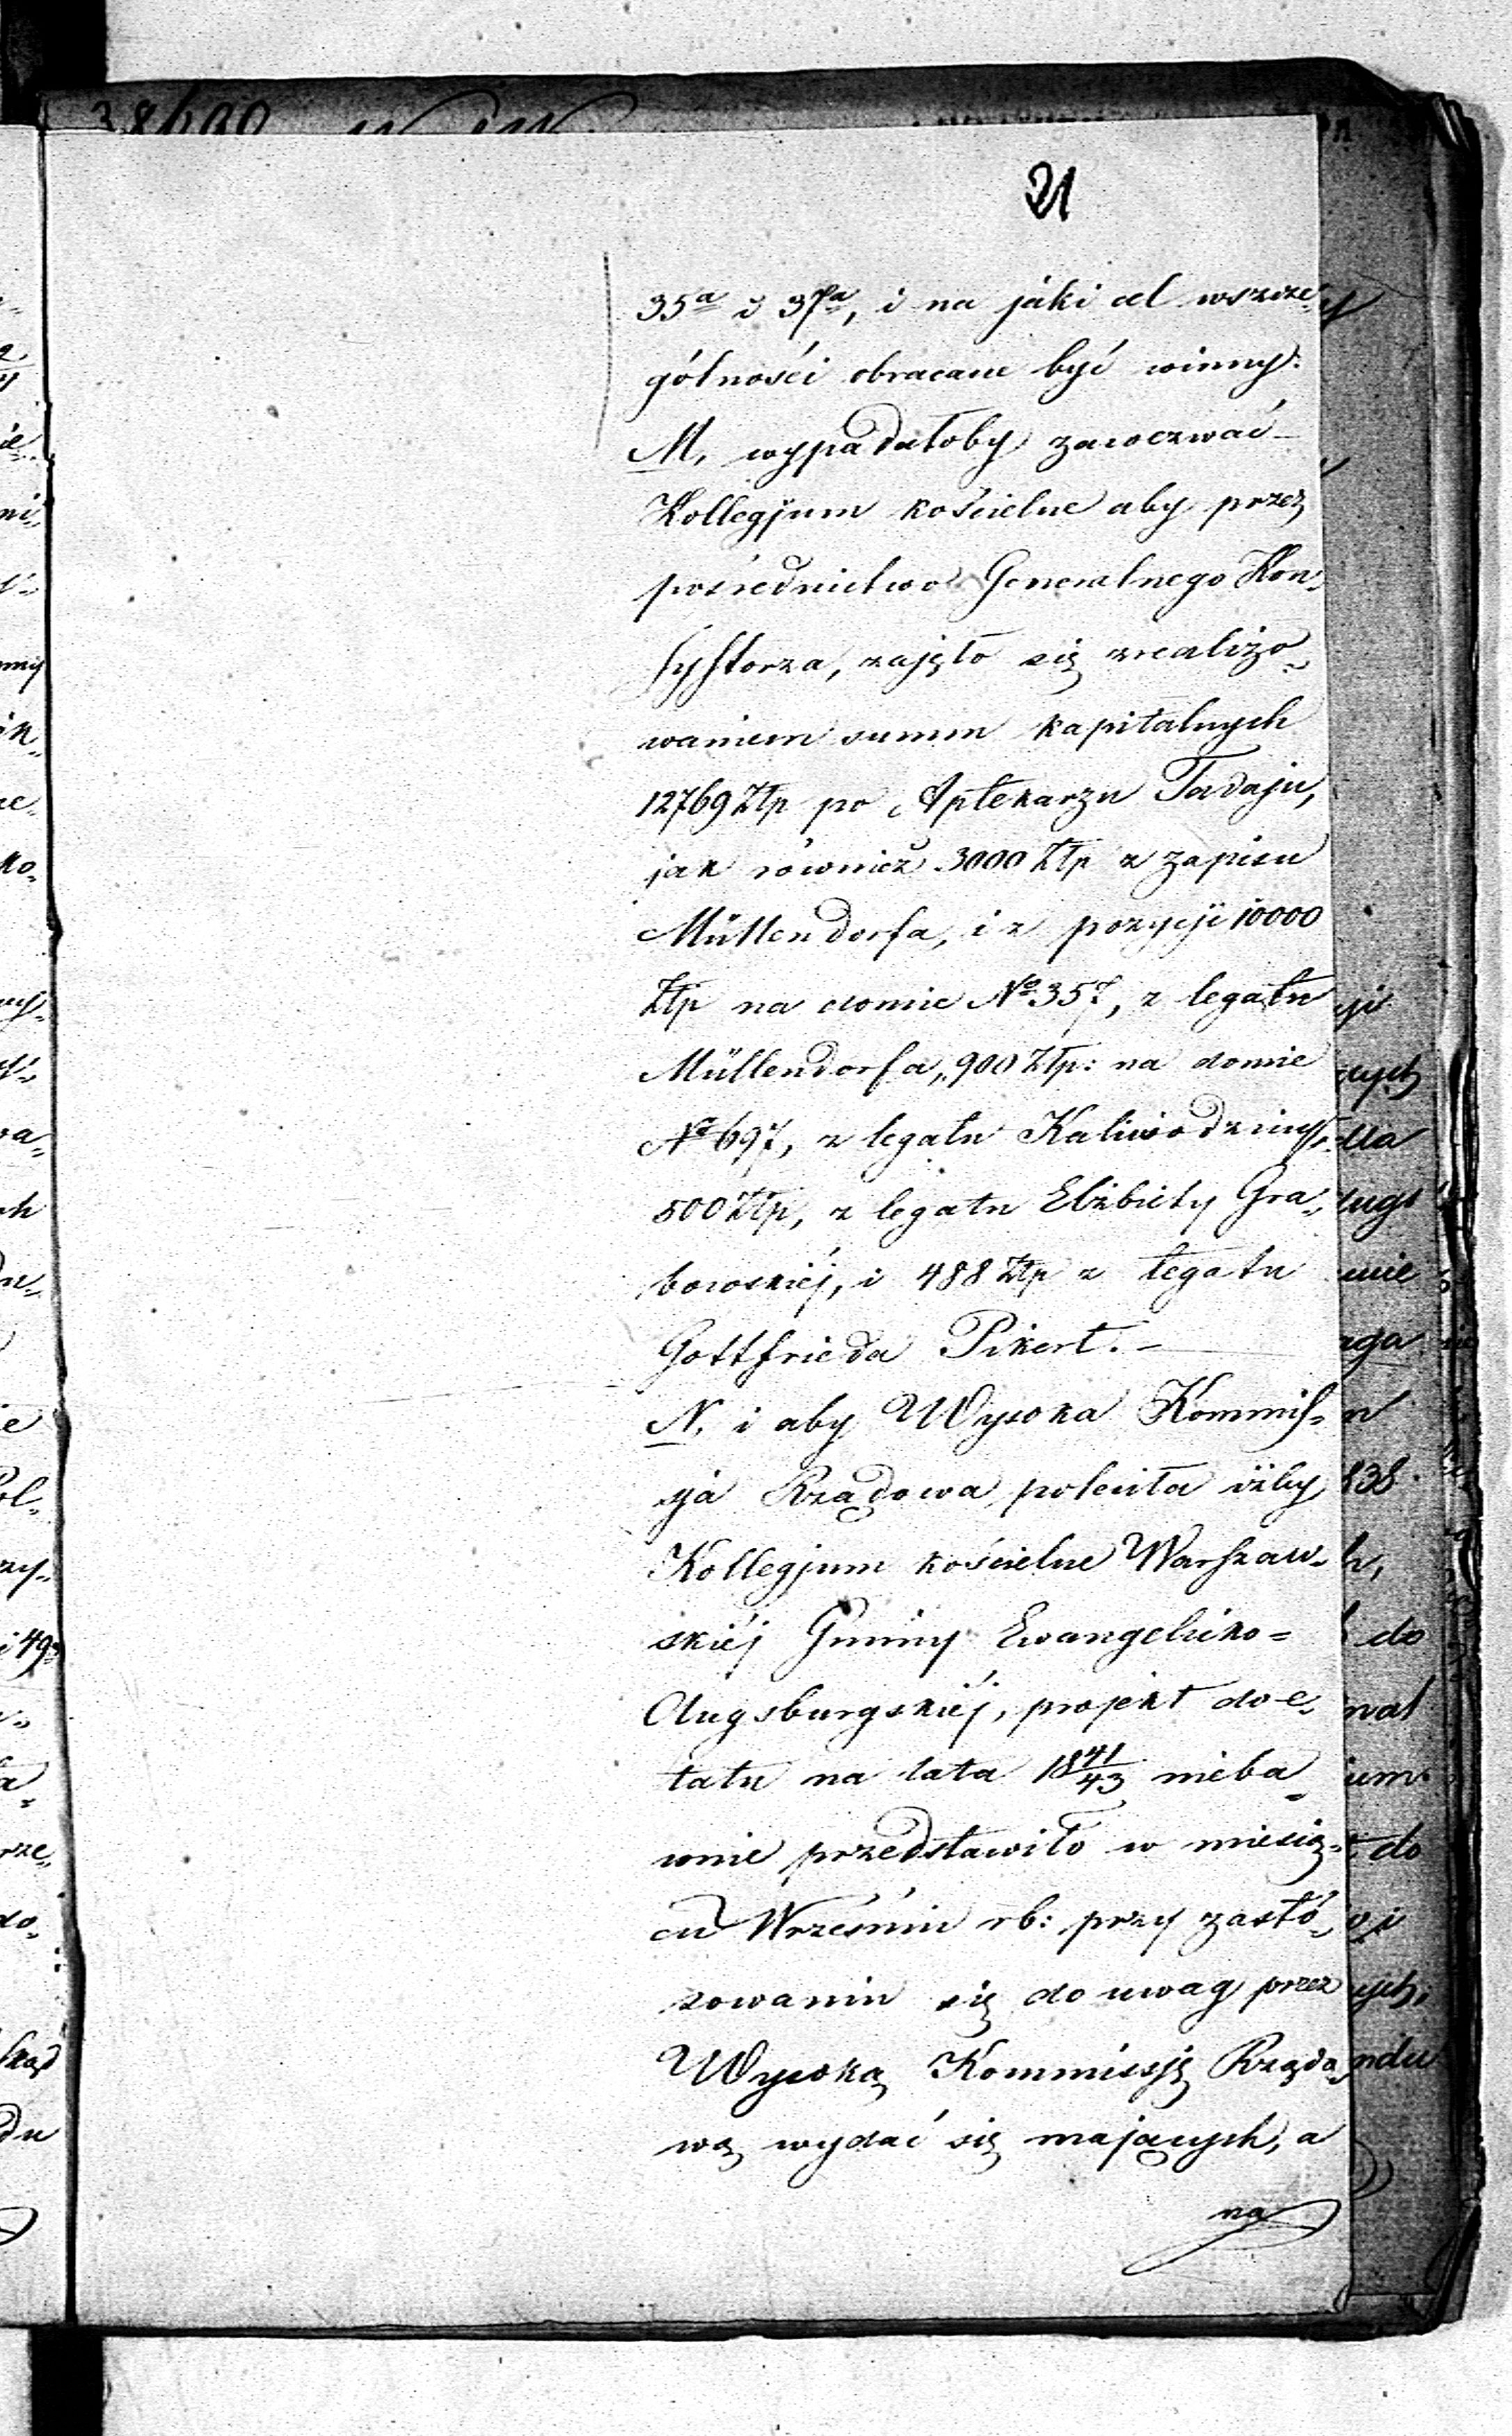 21
35ª i 37ª, i na jaki cel wszcze„
gólności obracane być winny.
M, wypadałoby zawezwać
Kollegjum kościelne aby przez
pośrednictwo Generalnego Kon„
systorza, zajęło się zrealizo„
waniem summ kapitalnych
12769 Złp po Aptekarzu Tadaju,
jak również 3000 Złp z zapisu
Müllendorfa, i z pozycji 10000
Złp na domie No 357, z legatu
Müllendorfa, 900 Złp: na domie
No 697, z legatu
500 Złp, z legatu Elżbiety Gra„
bowskiéj, i 488 Złp z legatu
Gottfrieda Pikert. –
N, i aby Wysoka Kommis=
yja Rządowa poleciła iżby
Kollegjum kościelne Warszaw=
skiéj Gminy Ewangelicko=
Augsburgskiéj, projekt do e„
tatu na lata 18 41/43 nieba„
wnie przedstawiło w miesią=
cu Wrześniu rb: przy zastó„
sowaniu się do uwag przez
Wysoką Kommissję Rządo„
wą wydać się mających, a
na